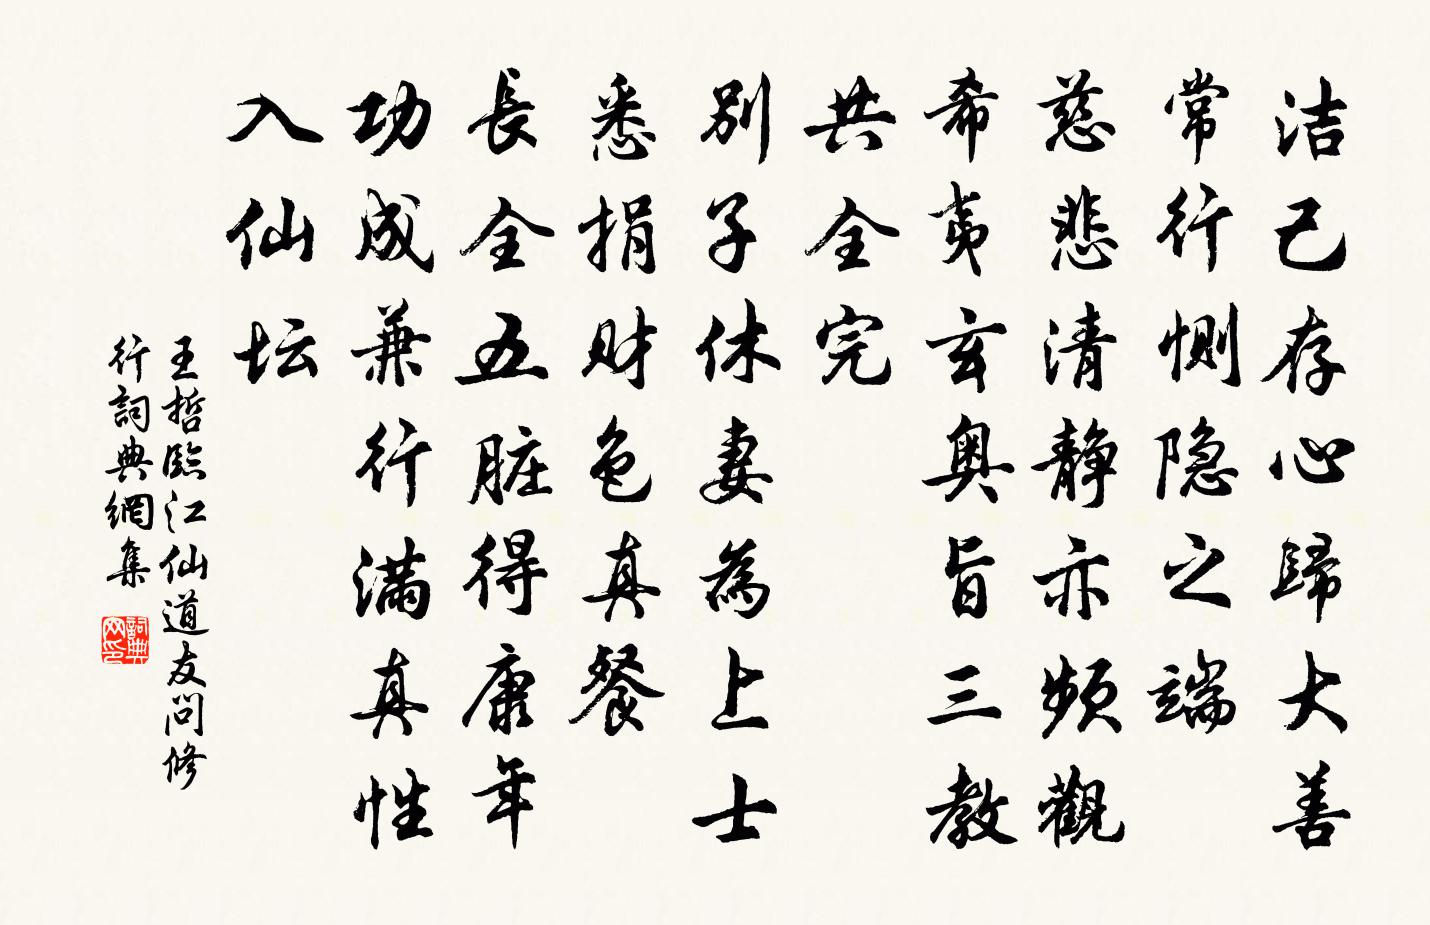 洁己存心歸大善
常行惻隐之端
慈悲清静亦頻觀
希夷玄奥旨三教
共全完
别子休妻為上士
悉捐财色真餐
長全五脏得康年
功成兼行满真性
入仙坛
王哲臨江仙道友問修
行詞典網集
詞典
网印